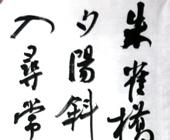 朱雀橋
夕陽斜
入尋常